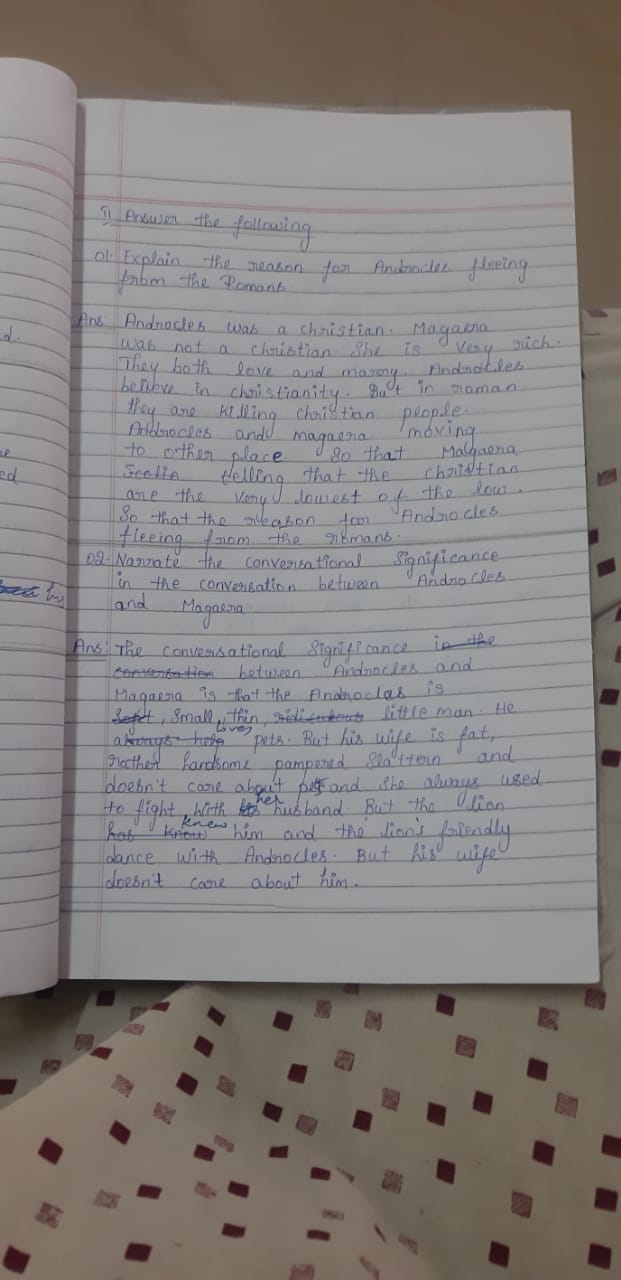 II Answer the following
01. Explain the reason for Androcles fleeing
from the Romans
Ans: Androcles was a christian. Magaera
was not a christian. She is very rich.
They both love and marry. Androcles
believe in christianity. But in roman
they are killing christian people.
Androcles and magaera moving
to other place So that Magaera
telling that the christian
are the very lowest of the low.
So that the reason for Androcles
fleeing from the romans.
02. Narrate the conversational Significance
in the conversation between Androcles
and Magaera.
Ans: The conversational Significance in the
conversation between Androcles and
Magaera is that the Androcles is
, Small, thin, ridiculous little man. He
always loves pets. But his wife is fat,
rather handsome pampered slattern and
doesn't care about pets and she always used
to fight with her husband. But the lion
has know knew him and the lion's friendly
dance with Androcles. But his wife
doesn't care about him.
d.
e
ed
his